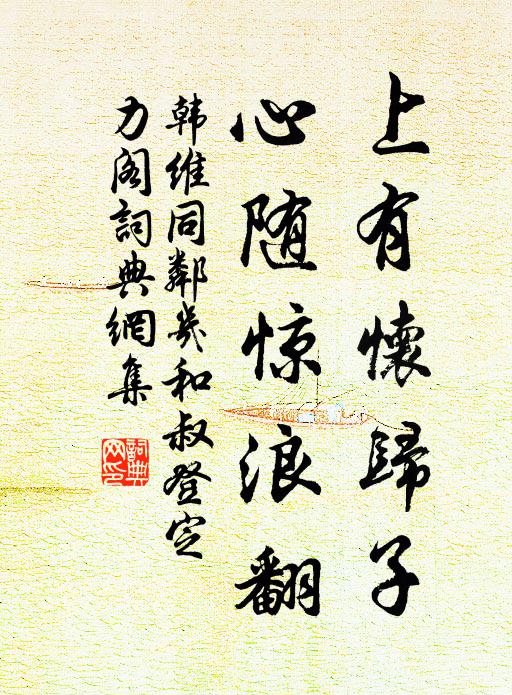 上有懷歸子
心随惊浪翻
韩维同鄰幾和叔登定
力阁詞典網集
詞典
网印